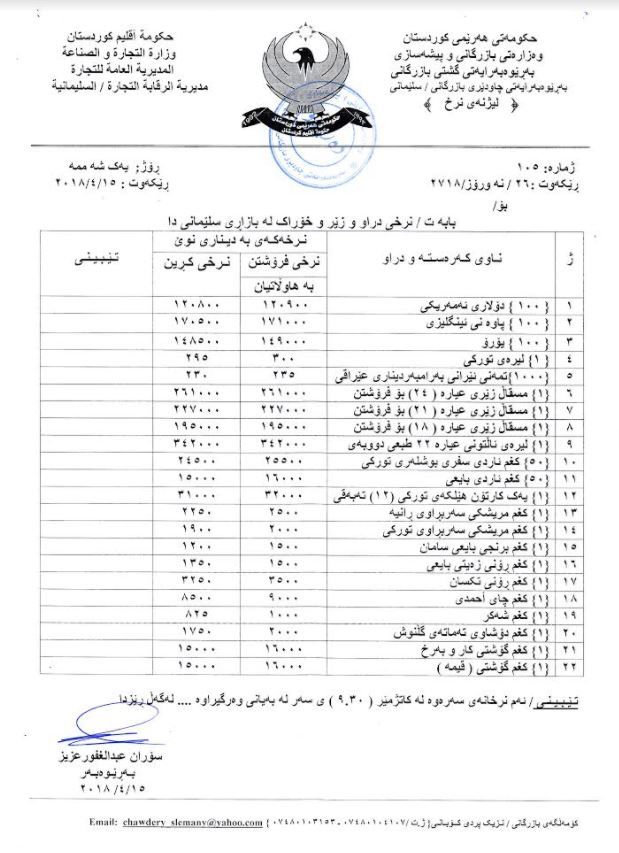 حكومة أقليم كوردستان
وزارة التجارة و الصناعة
المديرية العامة للتجارة
مديرية الرقابة التجارة / السليمانية
حکومەتی هەرێمی کوردستان
وەزارەتی بازرگانی و پیشەسازی
بەڕێوەبەرایەتی گشتی بازرگانی
بەڕێوەبەرایەتی چاودێری بازرگانی / سلێمانی
﴿ لیژنەی نرخ ﴾
حکومەتی هەرێمی کوردستان
حكومة اقليم كردستان
ژمارە: ١٠٥
ڕێکەوت : ٢٦/ نە ورۆز/ ٢٧١٨
بۆ/
ڕۆژ: یەک شە ممە
ڕێکەوت : ٢٠١٨/٤/١٥
بابە ت / نرخی دراو و زێر و خۆراک لە بازاڕی سلێمانی دا
ژ ناوی کەرەستە و دراو نرخەکەی بە دیناری نوێ تێبینی
نرخی فرۆشتن بە هاوڵاتیان نرخی کڕین
١ {١٠٠} دۆلاری ئەمەریکی ١٢٠٩٠٠ ١٢٠٨٠٠
٢ {١٠٠} پاوە نی ئینگلیزی ١٧١٠٠٠ ١٧٠٥٠٠
٣ {١٠٠} یۆرۆ ١٤٩٠٠٠ ١٤٨٥٠٠
٤ {١} لیرەی تورکی ٣٠٠ ٢٩٥
٥ {١٠٠٠} تمەنی ئێرانی بەرامبەردیناری عێراقی ٢٣٥ ٢٣٠
٦ {١} مسقاڵ زێڕی عیارە ( ٢٤ ) بۆ فرۆشتن ٢٦١٠٠٠ ٢٦١٠٠٠
٧ {١} مسقاڵ زێڕی عیارە ( ٢١ ) بۆ فرۆشتن ٢٢٧٠٠٠ ٢٢٧٠٠٠
٨ {١} مسقاڵ زێڕی عیارە ( ١٨ ) بۆ فرۆشتن ١٩٥٠٠٠ ١٩٥٠٠٠
٩ {١} لیرەی ئاڵتونی عیارە ٢٢ طبعی دووبەی ٣٤٢٠٠٠ ٣٤٢٠٠٠
١٠ {٥٠} کغم ئاردی سفری بوشلەری تورکی ٢٥٥٠٠ ٢٤٥٠٠
١١ {٥٠} کغم ئاردی بایعی ١٦٠٠٠ ١٥٠٠٠
١٢ {١} یەک کارتۆن هێلکەی تورکی (١٢) تەبەقی ٣٢٠٠٠ ٣١٠٠٠
١٣ {١} کغم مریشکی سەربڕاوی ڕانیە ٢٥٠٠ ٢٢٥٠
١٤ {١} کغم مریشکی سەربڕاوی تورکی ٢٠٠٠ ١٩٠٠
١٥ {١} کغم برنجی بایعی سامان ١٥٠٠ ١٢٠٠
١٦ {١} کغم ڕۆنی زەیتی بایعی ١٥٠٠ ١٣٥٠
١٧ {١} کغم ڕۆنی تکسان ٣٥٠٠ ٣٢٥٠
١٨ {١} کغم چای أحمدی ٩٠٠٠ ٨٥٠٠
١٩ {١} کغم شەکر ١٠٠٠ ٨٢٥
٢٠ {١} کغم دۆشاوی تەماتەی گڵنوش ٢٠٠٠ ١٧٥٠
٢١ {١} کغم گۆشتی کار و بەرخ ١٦٠٠٠ ١٥٠٠٠
٢٢ {١} کغم گۆشتی ( قیمە ) ١٦٠٠٠ ١٥٠٠٠
تێبینی/ ئەم نرخانەی سەرەوە لە کاتژمێر ( ٩.٣٠ ) ی سەر لە بەیانی وەرگیراوە .... لەگەڵ ڕێزدا
سۆران عبدالغفورعزیز
بەڕێوەبەر
٢٠١٨/٤/١٥
کۆمەڵگەی بازرگانی / نزیک پردی کۆبانی{ ژ.ت /٠٧٤٨٠١٠٤١٠٧ - ٠٧٤٨٠١٠٣١٥٣ } Email: chawdery_slemany@yahoo.com